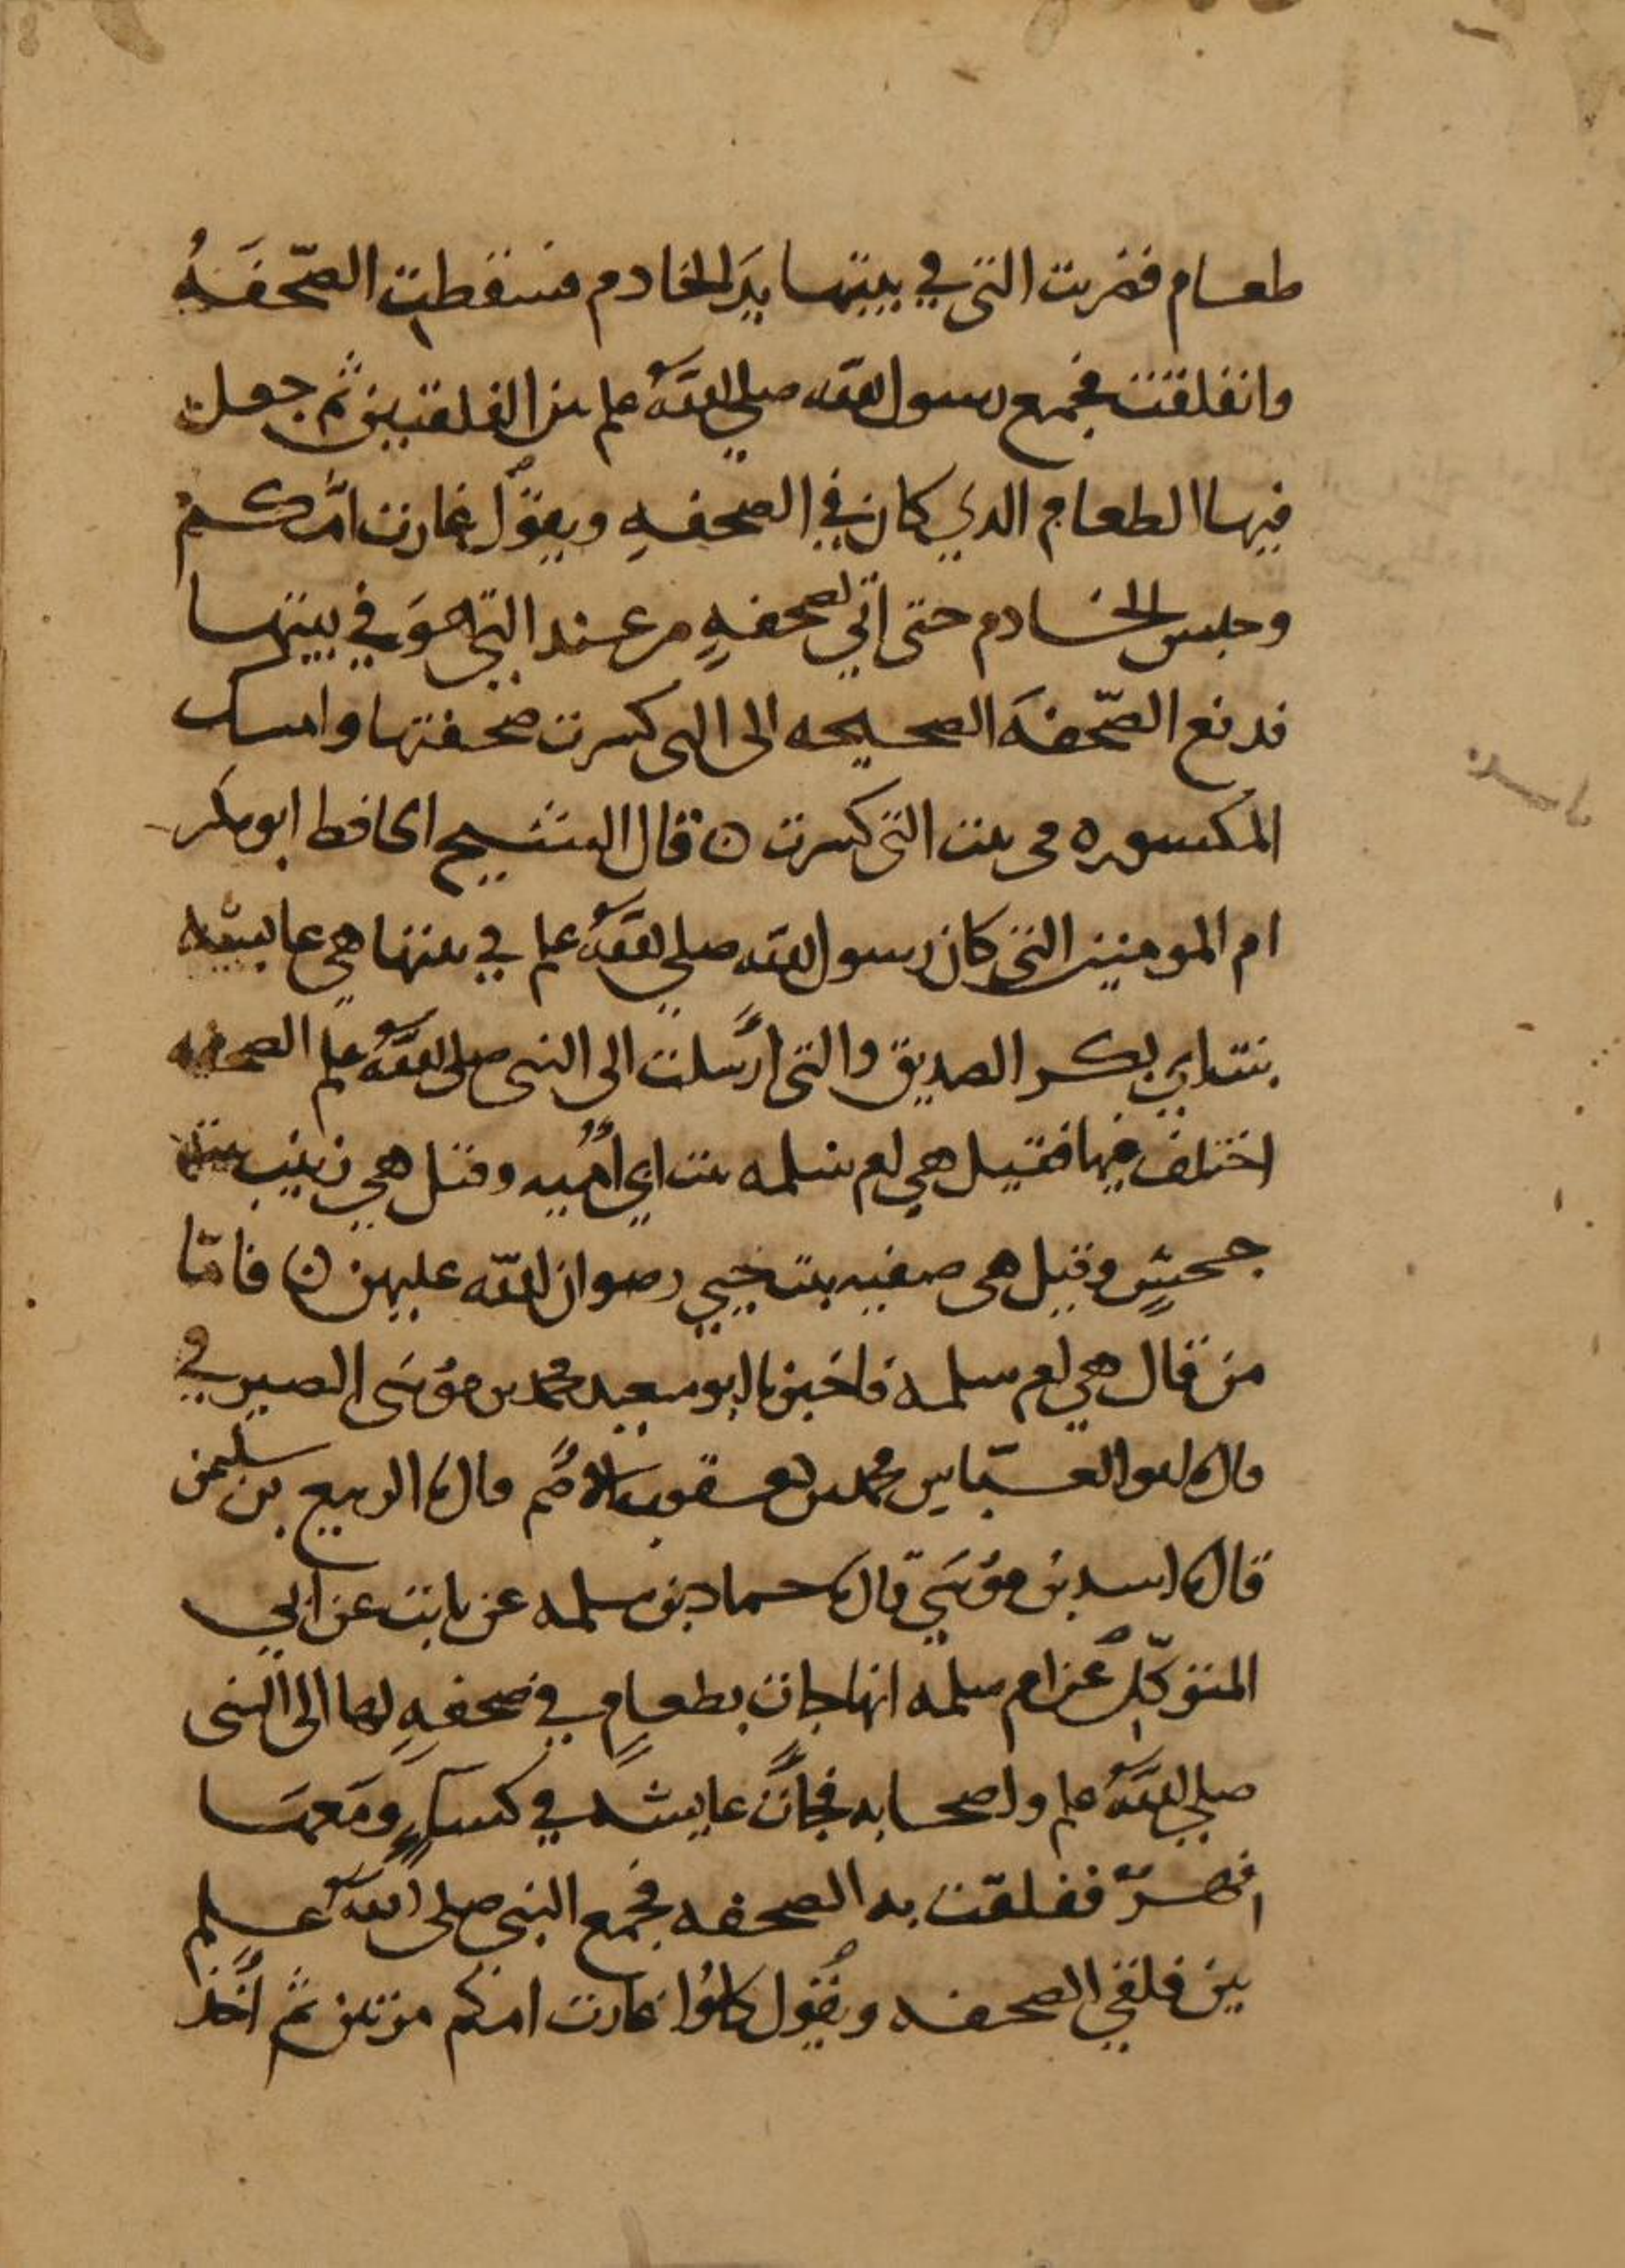 طعام فضربت التي في بيتها يَد الخادم فسقطت الصّحفَةُ
وانفلقت فجمع رسول الله صلى الله علم بين الفلقتين ثم جعل
فيها الطعام الدي كان في الصحفهِ ويقول غارت امّكم
وحبس الخادم حتى اتي بصحفهٍ من عند التي هوَ في بيتها
فدفع الصّحفَه الصحيحه الى التي كسرت صحفتها وامسك
المكسوره في بيت التي كسرت ن قال الشيخ الحافظ ابو بكر
ام المومنين التي كان رسول الله صلى الله علم في بيتها هي عايشه
بنت ابي بكر الصديق والتي ارسلت الى النبي صلى الله علم الصحفه
اختلف فيها فقيل هي ام سلمه بنت ابي اُميه وقيل هي زينب بنت
جحشٍ وقيل هي صفيه بنت حيي رضوان الله عليهن ن فامّا
من قال هي ام سلمه فاخبرنا ابو سعيد محمد بن موُسَى الصيرفي
قال نا ابو العبّاس محمد بن يعقوب الاصُم قال نا الربيع بن سليمن
قال نا اسد بن موُسَي قال نا حماد بن سلمه عن ثابت عن ابي
المتوكّل عن ام سلمه انها جات بطعامٍ في صحفهٍ لها الى النبي
صلى الله علم واصحابه فجات عايشه في كساءٍ ومَعهَا
فهرّ ففلقت به الصحفه فجمع النبي صلى الله علم
بين فلقتي الصحفه ويقُول كلوُا غارت امكم مرتين ثم اخذ